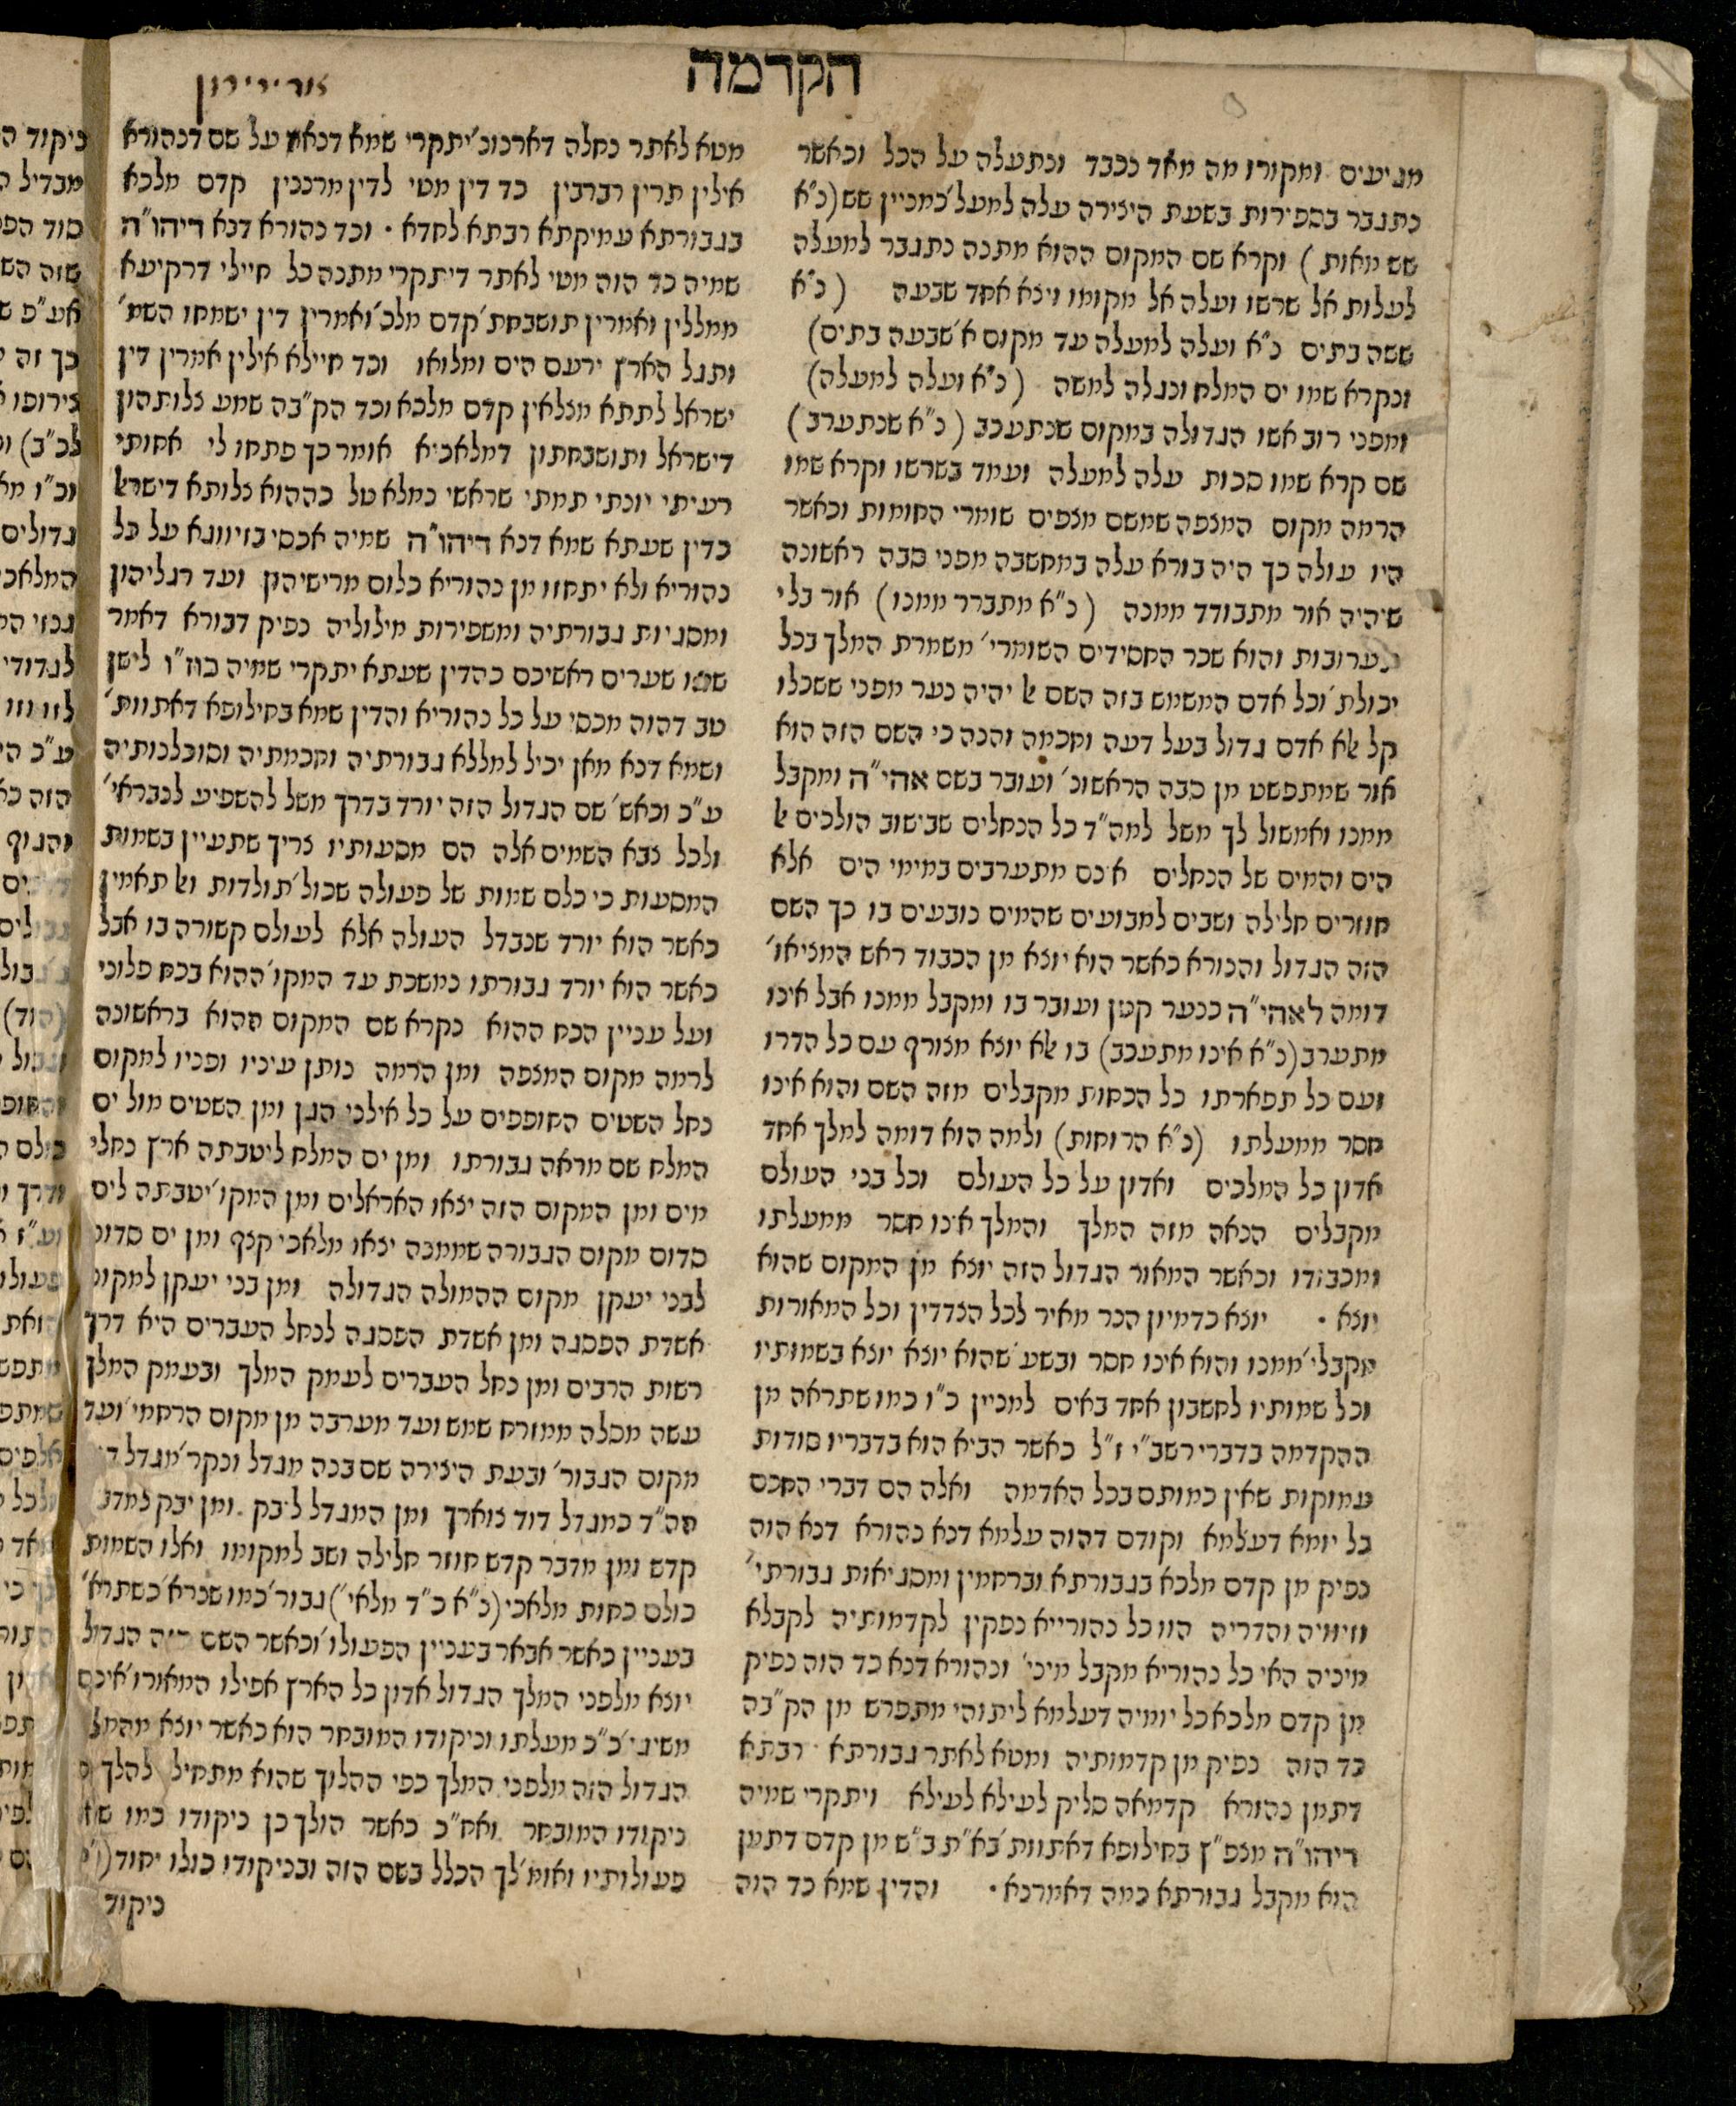 הקדמה
מגיעים ומקורו מה מאד נכבד ונתעלה על הכל וכאשר
נתגבר בספירות בשעת היצירה עלה למעל׳ כמניין שש (נ״א
שש מאות) וקרא שם המקום ההוא מתנה נתגבר למעלה
לעלות אל שרשו ועלה אל מקומו ויצא אחד שבעה (נ״א
ששה בתים נ״א ועלה למעלה עד מקום א׳ שבעה בתים)
ונקרא שמו ים המלח ונגלה למשה (נ״א ועלה למעלה)
ומפני רוב אשו הגדולה במקום שנתעכב (נ״א שנתערב)
שם קרא שמו סכות עלה למעלה ועמד בשרשו וקרא שמו
הרמה מקום המצפה שמשם מצפים שומרי החומות וכאשר
היו עולה כך היה בורא עלה במחשבה מפני סבה ראשונה
שיהיה אור מתבודד ממנה (נ״א מתברר ממנו) אור בלי
תערובות והוא שכר החסידים השומרי׳ משמרת המלך בכל
יכולת׳ וכל אדם המשמש בזה השם לא יהיה נער מפני ששכלו
קל אלא אדם גדול בעל דעה וחכמה והנה כי השם הזה הוא
אור שמתפשט מן סבה הראשונ׳ ועובר בשם אהי״ה ומקבל
ממנו ואמשול לך משל למה״ד כל הנחלים שבישוב הולכים אל
הים והמים של הנחלים אינם מתערבים במימי הים אלא
חוזרים חלילה ושבים למבועים שהמים נובעים בו כך השם
הזה הגדול והנורא כאשר הוא יוצא מן הכבוד ראש המציאו׳
דומה לאהי״ה כנער קטן ועובר בו ומקבל ממנו אבל אינו
מתערב (נ״א אינו מתעכב) בו אלא יוצא מצורף עם כל הדרו
ועם כל תפארתו כל הכחות מקבלים מזה השם והוא אינו
חסר ממעלתו (נ״א הרוחות) ולמה הוא דומה למלך אחד
אדון כל המלכים ואדון על כל העולם וכל בני העולם
מקבלים הנאה מזה המלך והמלך אינו חסר ממעלתו
ומכבודו וכאשר המאור הגדול הזה יוצא מן המקום שהוא
יוצא • יוצא כדמיון הנר מאיר לכל הצדדין וכל המאורות
מקבלי׳ ממנו והוא אינו חסר ובשע׳ שהוא יוצא יוצא בשמותיו
וכל שמותיו לחשבון אחד באים למניין כ״ו כמו שתראה מן
ההקדמה בדברי רשב״י ז״ל כאשר הביא הוא בדבריו סודות
עמוקות שאין כמותם בכל האדמה ואלה הם דברי החכם
כל יומא דעלמא וקודם דהוה עלמא דנא נהורא דנא הוה
נפיק מן קדם מלכא בגבורתא וברחמין ומסגיאות גבורתי׳
וזיויה והדריה הוו כל נהורייא נפקין לקדמותיה לקבלא
מיניה האי כל נהוריא מקבל מיני׳ ונהורא דנא כד הוה נפיק
מן קדם מלכא כל יומיה דעלמא לית והי מתפרש מן הק״בה
כד הוה נפיק מן קדמותיה ומטא לאתר גבורתא רבתא
דתמן נהורא קדמאה סליק לעילא לעילא ויתקרי שמיה
דיהו״ה מצפ״ץ בחילופא דאתוות׳ בא״ת ב״ש מן קדם דתמן
הוא מקבל גבורתא כמה דאמרנא • והדין שמא כד הוה
מטא לאתר נחלה דארנונ׳ יתקרי שמא דנאת על שם דנהורא
אילין תרין רברבין כד דין מטי לדין מרכבין קדם מלכא
בגבורתא עמיקתא רבתא לחדא • וכד נהורא דנא דיהו״ה
שמיה כד הוה מטי לאתר דיתקרי מתנה כל חיילי דרקיעא
ממללין ואמרין תושבחת׳ קדם מלכ׳ ואמרין דין ישמחו השמ׳
ותגל הארץ ירעם הים ומלואו וכד חיילא אילין אמרין דין
ישראל לתתא מצלאין קדם מלכא וכד הק״בה שמע צלותהון
דישראל ותושבחתון דמלאכיא אומר כך פתחו לי אחותי
רעיתי יונתי תמתי שראשי נמלא טל בההוא צלותא דישראל
בדין שעתא שמא דנא דיהו״ה שמיה אכסי בזיוונא על כל
נהוריא ולא יתחזו מן נהוריא כלום מרישיהון ועד רגליהון
ומסגיות גבורתיה ומשפירות מילוליה נפיק דבורא דאמר
שאו שערים ראשיכם בהדין שעתא יתקרי שמיה כוז״ו לישן
טב דהוה מכסי על כל נהוריא והדין שמא בחילופא דאתוות׳
ושמא דנא מאן יכיל למללא גבורתיה וחכמתיה וסוכלנותיה
ע״כ וכאש׳ שם הגדול הזה יורד בדרך משל להשפיע לנבראי׳
ולכל צבא השמים אלה הם מסעותיו צריך שתעיין בשמות
המסעות כי כלם שמות של פעולה שכול׳ תולדות ואל תאמין
כאשר הוא יורד שנבדל העולה אלא לעולם קשורה בו אבל
כאשר הוא יורד גבורתו נמשכת עד המקו׳ ההוא בכח פלוני
ועל עניין הכח ההוא נקרא שם המקום ההוא בראשונה
לרמה מקום המצפה ומן הרמה נותן עיניו ופניו למקום
נחל השטים החופפים על כל אילני הגן ומן השטים מול ים
המלח שם מראה גבורתו ומן ים המלח ליטבתה ארץ נחלי
מים ומן המקום הזה יצאו האראלים ומן המקו׳ יטבתה לים
סדום מקום הגבורה שממנה יצאו מלאכי קצף ומן ים סדום
לבני יעקן מקום ההמולה הגדולה ומן בני יעקן למקום
אשדת הפסגה ומן אשדת הפסגה לנחל העברים היא דרך
רשות הרבים ומן נחל העברים לעמק המלך ובעמק המלך
עשה מסלה ממזרח שמש ועד מערבה מן מקום הרחמי׳ ועד
מקום הגבור׳ ובעת היצירה שם בנה מגדל ונקר׳ מגדל
הה״ד כמגדל דוד צוארך ומן המגדל ליבק ומן יבק למדבר
קדש ומן מדבר קדש חוזר חלילה ושב למקומו ואלו השמות
כולם כחות מלאכי (נ״א כ״ד מלאי׳) גבור׳ כמו שנרא׳ כשתרא׳
בעניין כאשר אבאר בעניין הפעולו׳ וכאשר השם הזה הגדול
יוצא מלפני המלך הגדול אדון כל הארץ אפילו המאורו׳ אינם
משיגי׳ כ״כ מעלתו וניקודו המובחר הוא כאשר יוצא מהמל
הגדול הזה מלפני המלך כפי ההלוך שהוא מתחיל להלך
ניקודו המובחר ואח״כ כאשר הולך כן ניקודו כמו
פעולותיו ואומ׳ לך הכלל בשם הזה ובניקודו כולו יחוד
ניקוד